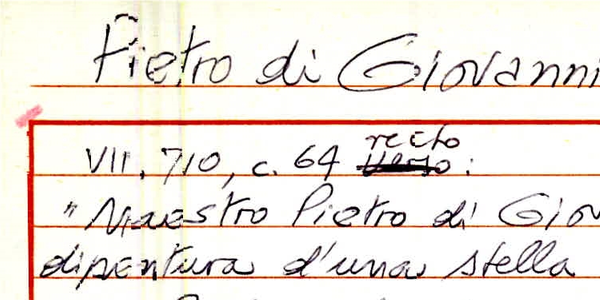 Pietro di Giovanni
VII, 710, c. 64 recto:
"Maestro Pietro di Giov
dipentura d'una stella